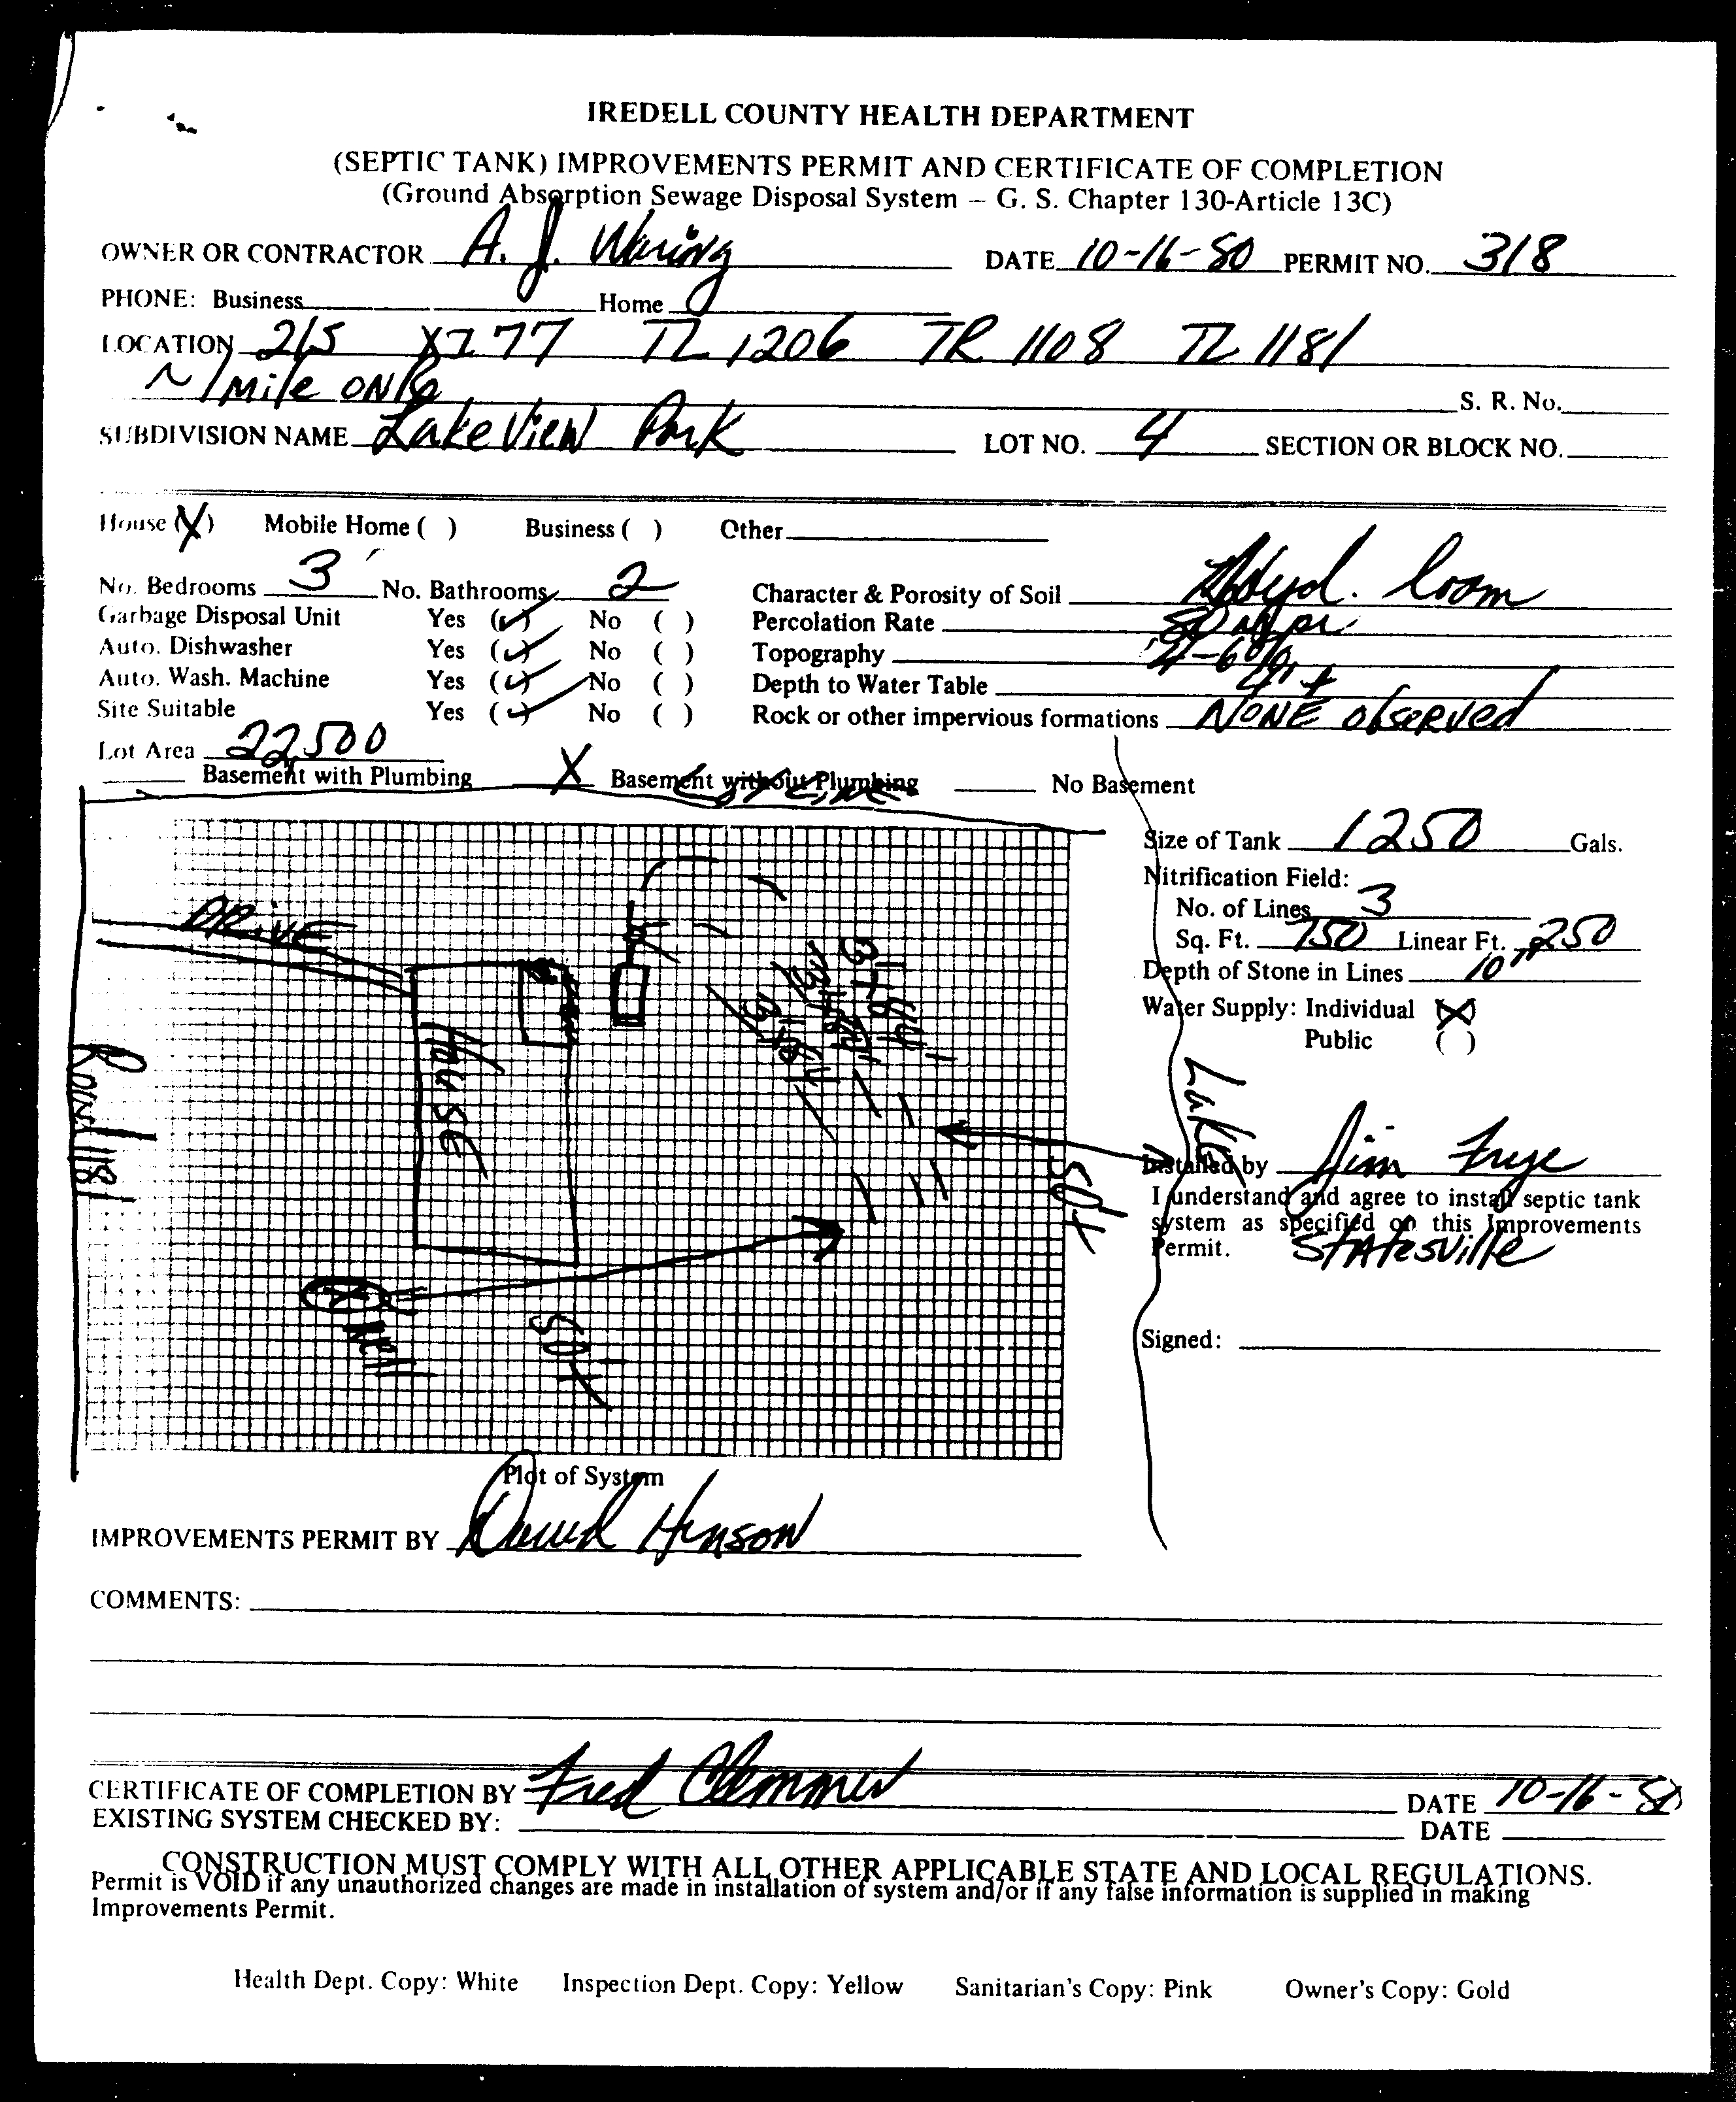 IREDELL COUNTY HEALTH DEPARTMENT
(SEPTIC TANK) IMPROVEMENTS PERMIT AND CERTIFICATE OF COMPLETION
(Ground Absorption Sewage Disposal System – G. S. Chapter 130-Article 13C)
OWNER OR CONTRACTOR A. J. Waring DATE 10-16-80 PERMIT NO. 318
PHONE: Business Home
LOCATION 21S XI77 TL 1206 TR 1108 TL 1181
~ 1 mile on S. R. No.
SUBDIVISION NAME Lake View Park LOT NO. 4 SECTION OR BLOCK NO.
House (X) Mobile Home ( ) Business ( ) Other
No. Bedrooms 3 No. Bathrooms 2 Character & Porosity of Soil loam
Garbage Disposal Unit Yes (✓) No ( ) Percolation Rate
Auto. Dishwasher Yes (✓) No ( ) Topography 2-6%
Auto. Wash. Machine Yes (✓) No ( ) Depth to Water Table 4'+
Site Suitable Yes (✓) No ( ) Rock or other impervious formations NONE observed
Lot Area 22,500
Basement with Plumbing X Basement without Plumbing No Basement
Lot Line
DRIVE
House
Road 1181
Well
50+
50+
Lake
Size of Tank 1250 Gals.
Nitrification Field:
No. of Lines 3
Sq. Ft. 750 Linear Ft. 250
Depth of Stone in Lines 10"
Water Supply: Individual (X)
Public ( )
Installed by Jim Frye
I understand and agree to install septic tank
system as specified on this Improvements
Permit. Statesville
Signed:
Plot of System
IMPROVEMENTS PERMIT BY David Henson
COMMENTS:
CERTIFICATE OF COMPLETION BY Fred Clemmer DATE 10-16-80
EXISTING SYSTEM CHECKED BY: DATE
CONSTRUCTION MUST COMPLY WITH ALL OTHER APPLICABLE STATE AND LOCAL REGULATIONS.
Permit is VOID if any unauthorized changes are made in installation of system and/or if any false information is supplied in making
Improvements Permit.
Health Dept. Copy: White Inspection Dept. Copy: Yellow Sanitarian's Copy: Pink Owner's Copy: Gold